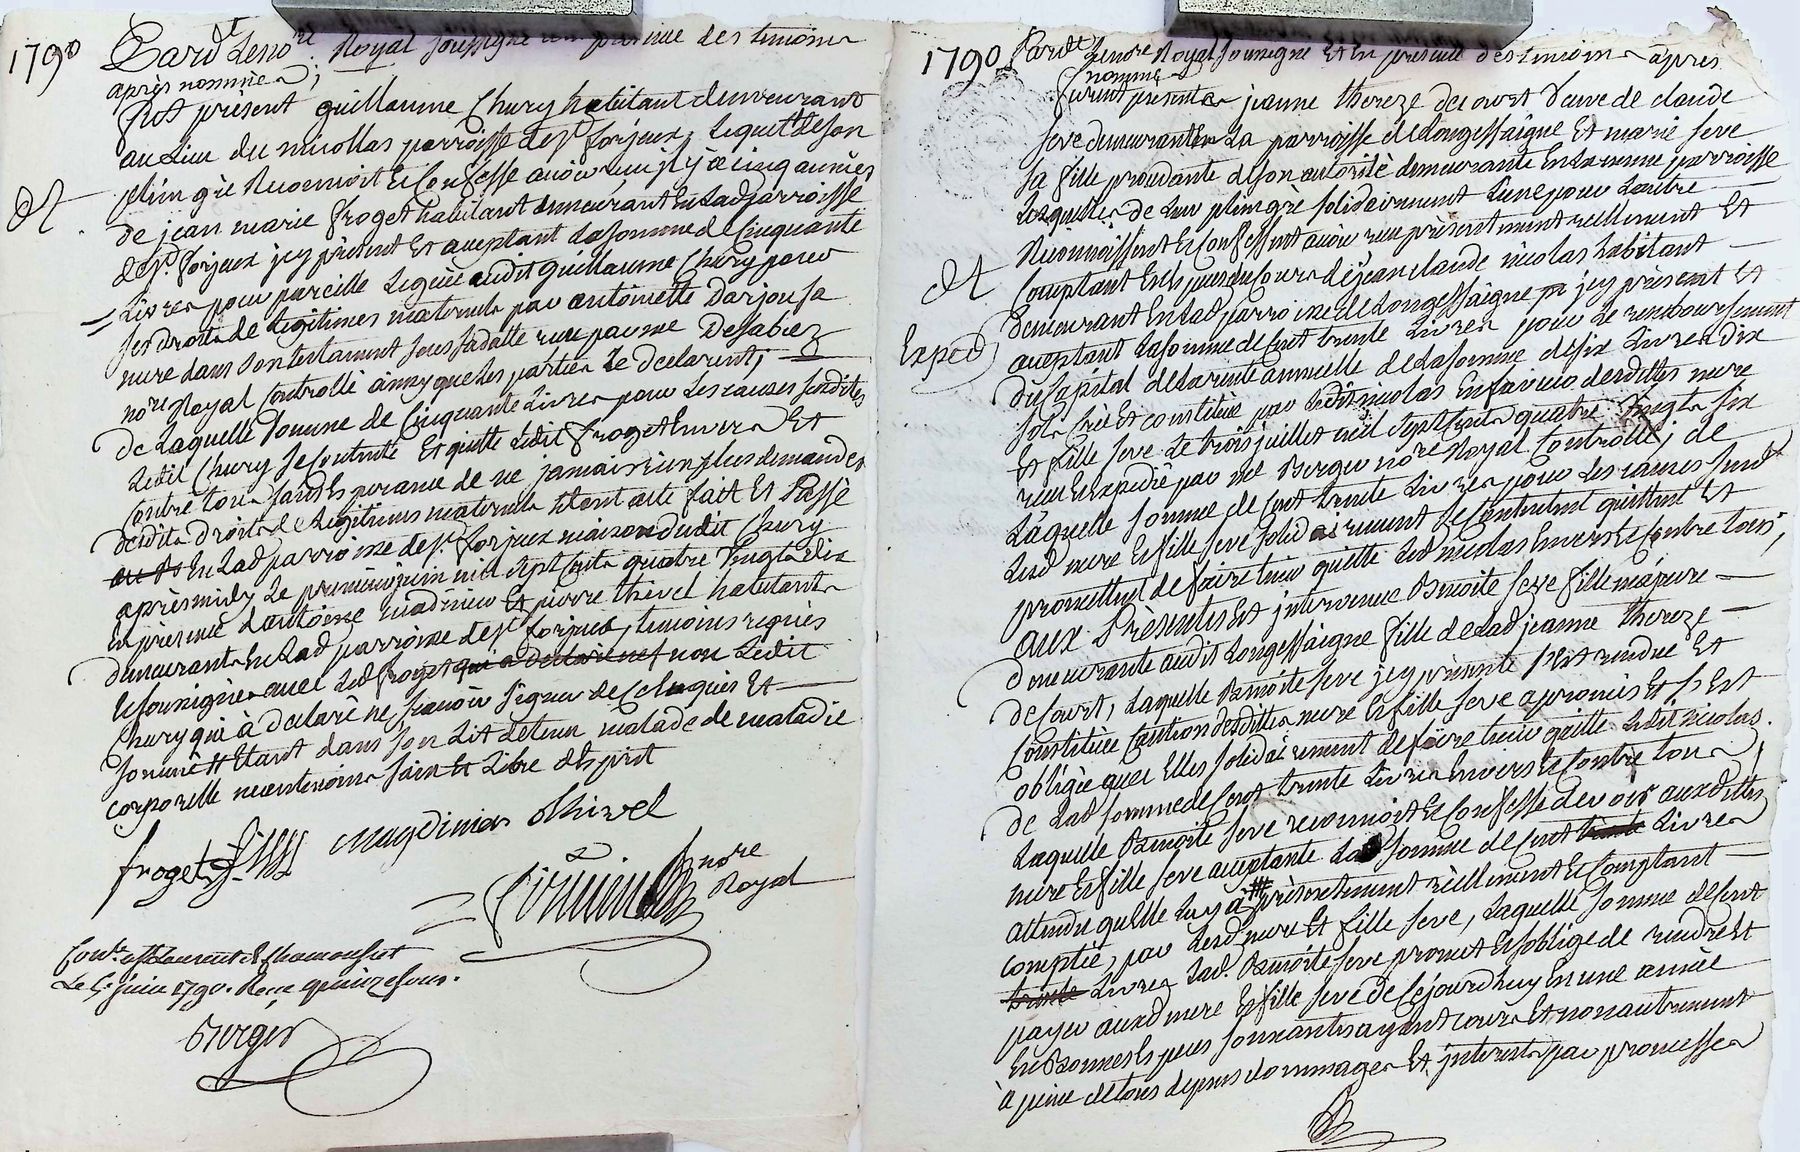 1790
Pardt Le nore Royal soussigne en presence des temoins
après nommés ;
fut présent guillaume Chury habitant demeurant
au Lieu du nicollas parroisse de st forjeux, Lequel de son
plein grè Reconnoit et Confesse avoir reçu il y à cinq années
dt
de jean marie froget habitant demeurant en Lad parroisse
de st forjeux jcy présent et aceptant La somme de Cinquante
Livres pour pareille Leguée audit guillaume Chury pour
ses droits de Legitimes maternels par antoinette Darjou sa
mere dans son testament sous sa datte reçu par me Dessabiez
nore Royal Controllé ainsy que les parties Le declarent ;
de Laquelle Somme de Cinquante Livres pour Les causes susdites
Ledit Chury se Contente et quitte Ledit froget envers et
Contre tous sans esperance de ne jamais rien plus demander
desdits droits de Legitimes maternels dont acte fait et Passé
au d en Lad parroisse de st forjeux maison dudit Chury
après midy Le premier juin mil sept Cents quatre Vingts dix
en présence d'antoine magdinier et pierre thivel habitants
demeurants en Lad parroisse de st forjeux, temoins requis
et soussignés avec Led froget qui a declaré ne non Ledit
Chury qui à declaré ne sçavoir signer de Ce enquis et
sommé # etant dans son Lit detenu malade de maladie
corporelle neantmoins sain et Libre d'esprit
froget magdinier thivel
nore
Royal
Conté à st Laurent de Chamousset
Le 5. juin 1790. Reçu quinze sous.
Berger
1790
Pardt Le nore Royal soussigne et en presence des temoins après
nommés
furent presentes jeanne thereze decourt Veuve de claude
seve demeurante en La parroisse de Longessaigne et marie seve
sa fille procedante de son autorité demeurante en La meme parroisse
Lesquelles de Leur plein grè solidairement L'une pour L'autre
Reconnoissent et Confessent avoir reçu présentement réellement et
dt
Comptant en especes du Cours de jean claude nicolas habitant
demeurant en Lad parroisse de Longessaigne jcy présent et
Exped
aceptant La somme de Cent trente Livres pour Le remboursement
du Capital de La rente annuelle de La somme de six Livres dix
sols Créé et constituée par Ledit nicolas en faveur desdittes mere
et fille seve Le trois juillet mil sept Cents quatre Vingts six
reçu et expedié par me Berger nore Royal Controllé ; de
Laquelle somme de Cent trente Livres pour Les causes susd
Lesd mere et fille seve solidairement se Contentent quittent et
promettent de faire tenir quitte Led nicolas envers et Contre tous ;
aux Présentes est jntervenue Benoite seve fille majeure
demeurante audit Longessaigne fille de Lad jeanne thereze
deCourt, Laquelle Benoite seve jcy présente s'est rendue et
Constituée Caution desdittes mere et fille seve a promis et s'est
obligée avec elles solidairement de faire tenir quitte Ledit nicolas
de Lad somme de Cent trente Livres envers et Contre tous,
Laquelle Benoite seve reconnoit et Confesse devoir auxdittes
mere et fille seve aceptante La somme de Cent trente Livres
attendu quelle Luy à # présentement réellement et Comptant
comptée, par Lesd mere et fille seve, Laquelle somme de Cent
trente Livres Lad. Benoite seve promet et s'oblige de rendre et
payer auxd mere et fille seve de Cejourdhuy en une année
en Bonnes especes sonnantes ayant cours et non autrement
à peine de tous depens dommages et jnterests par promesses